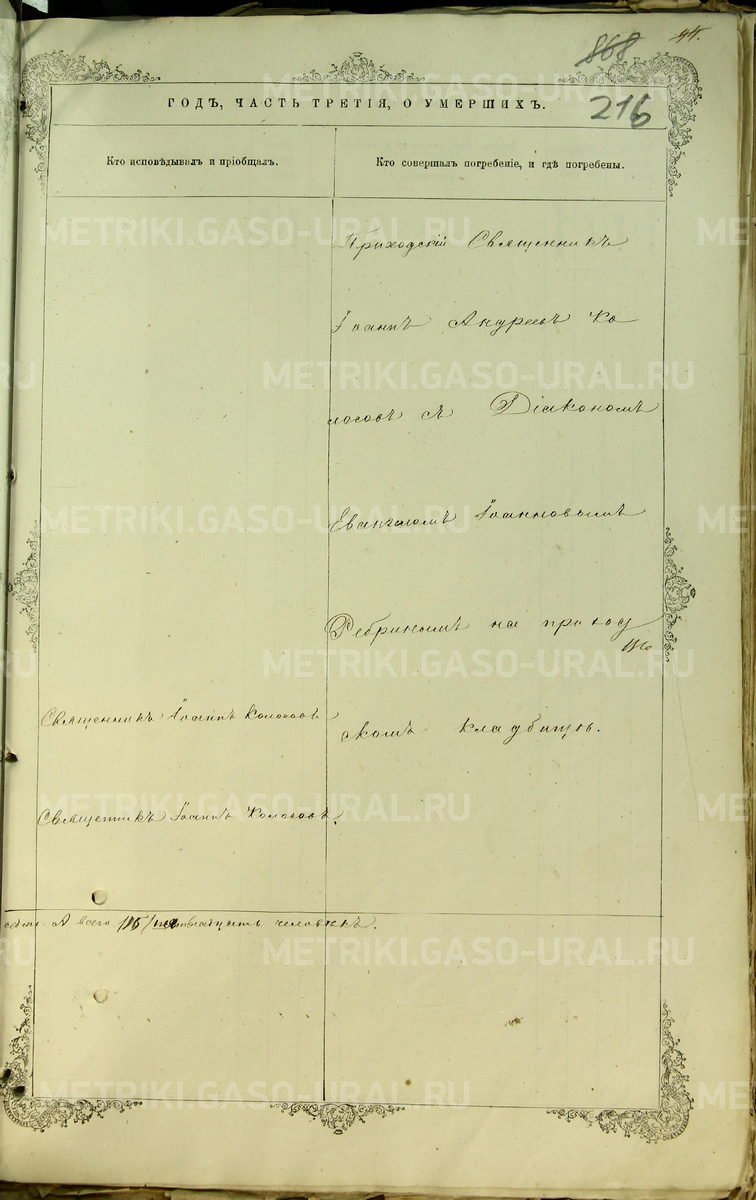 868
44.
216
ГОДЪ, ЧАСТЬ ТРЕТІЯ, О УМЕРШИХЪ.
Кто исповѣдывалъ и пріобщалъ.
Кто совершалъ погребеніе, и гдѣ погребены.
Приходскій Священникъ
Іоаннъ Андреевъ Ко
лосовъ съ Діакономъ
Евангеломъ Іоанновымъ
Ребринымъ на приход
скомъ кладбищѣ.
Священникъ Іоаннъ Колосовъ
Священникъ Іоаннъ Колосовъ.
А всего человѣкъ.
METRIKI.GASO-URAL.RU